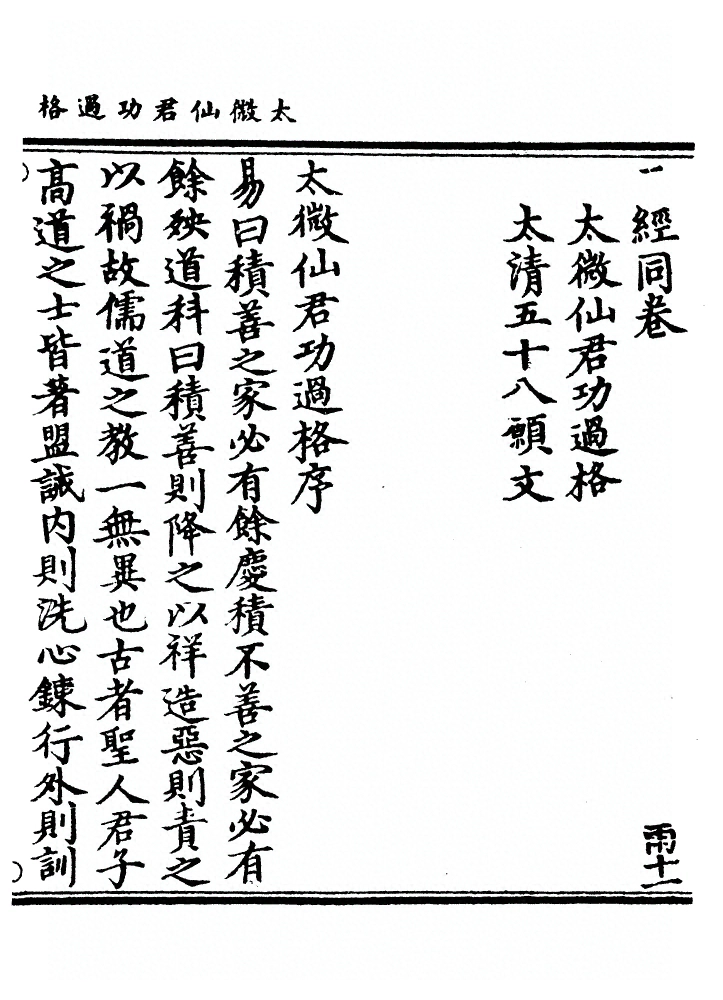 太微仙君功過格
經同卷
雨十一
太微仙君功過格
太清五十八願文
太微仙君功過格序
易曰積善之家必有餘慶積不善之家必有
餘殃道科曰積善則降之以祥造惡則責之
以禍故儒道之教一無異也古者聖人君子
高道之士皆著盟誡内則洗心鍊行外則訓